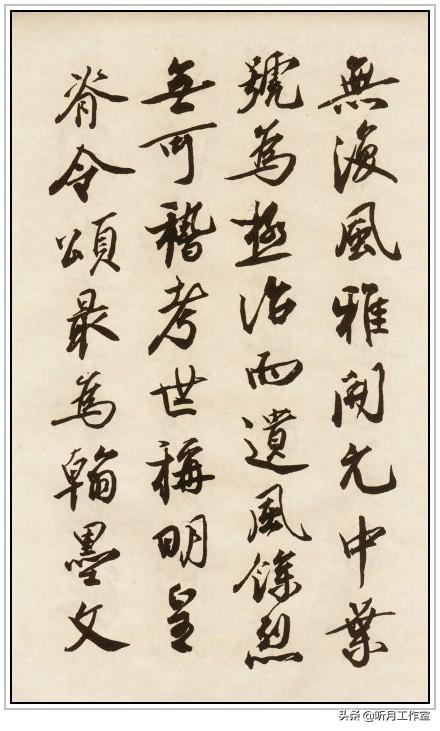 無海風雅開元中葉
號為極治而遺風餘烈
無可稽考世稱明皇
脊令頌最為翰墨文
头条 @听月工作室